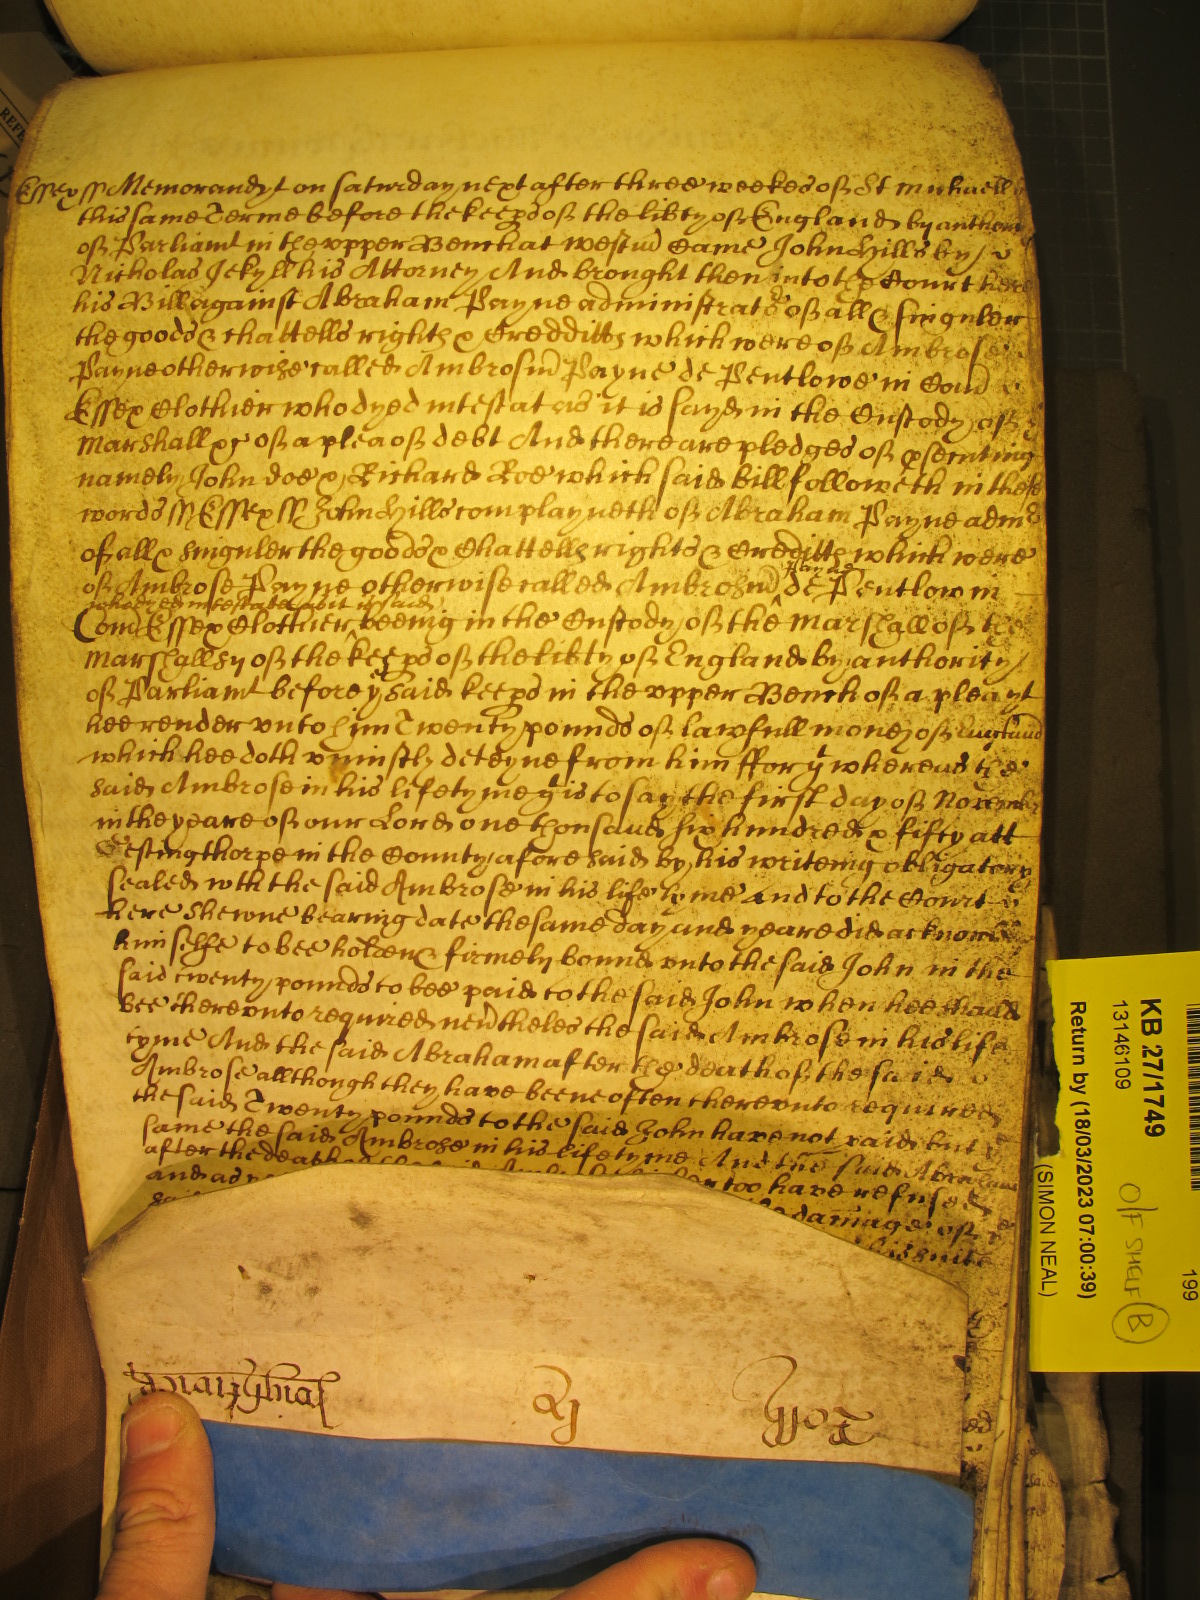 Essex ss Memorand qd on saturday next after three weekes of St Michaell
this same Terme before the keeps of the libty of England by author
of Parliamt in the vpper Bench at westm Came John Hills by
Nicholas Jekyll his Attorney And brought then into the Court here
his Bill against Abraham Payne administrator of all & singuler
the goods & chattells rights & Credditts which were of Ambrose
Payne otherwise called Ambrosiu Payne de Pentlowe in Com
Essex Clothier who dyed intestat as it is sayd in the Custody of
Marshall &c of a plea of debt And there are pledges of psecuting
namely John doe & Richard Roe which said bill followeth in these
words ss Essex ss John Hills complayneth of Abraham Payne adm
of all & singuler the goods & Chattells rights & Creditts which were
Payne
of Ambrose Payne otherwise called Ambrosiu de Pentlow in
who dyed intestate as it is said
Com Essex Clothier beeing in the Custody of the Marshall of the
Marshallsy of the keeps of the libty of England by authority
of Parliamt before ye said keeps in the vpper Bench of a plea yt
hee render vnto him Twenty pounds of lawfull money of England
which hee doth vniustly deteyne from him ffor yt whereas the
said Ambrose in his lifetyme yt is to say the first day of November
in the yeare of our Lord one thousand six hundred & fifty att
Gestingthorpe in the County aforesaid by his writeing obligatory
sealed wth the said Ambrose in his life tyme and to the Court
here shewne bearing date the same day and yeare did acknow
himselfe to bee holden & firmely bound vnto the said John in the
said twenty pounds to bee paid to the said John when hee should
bee therevnto required nevtheles the said Ambrose in his life
tyme And the said Abraham after the death of the said
Ambrose allthough they have beene often therevnto required
the said Twenty pounds to the said John have not paid but
same the said Ambrose in his lifetyme And the said Abraham
after the death of the said too have refused
and as the damage of
said his suite
KB 27/1749
13146109
Return by (18/03/2023 07:00:39)
(SIMON NEAL)
O/F SHELF B
199